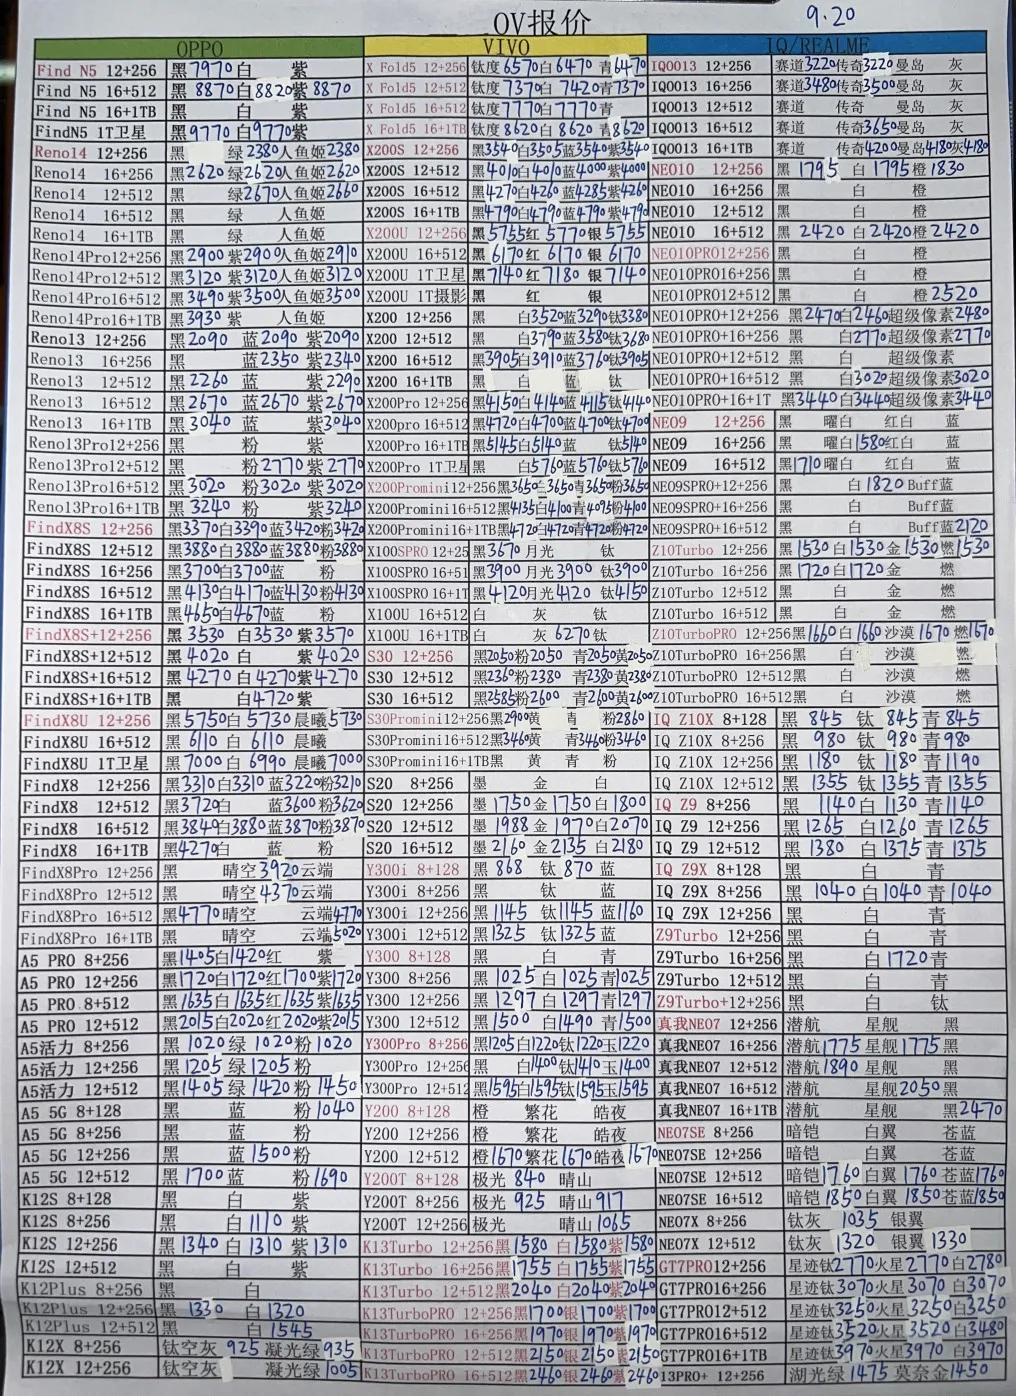 OV报价 9.20
OPPO VIVO IQ/REALME
Find N5 12+256 黑7970白 紫 X Fold5 12+256 钛度6570白6470 青6470 IQOO13 12+256 赛道3220传奇3220曼岛 灰
Find N5 16+512 黑8870白8820紫8870 X Fold5 12+512 钛度7370白7420青7370 IQOO13 16+256 赛道3480传奇3500曼岛 灰
Find N5 16+1TB 黑 白 紫 X Fold5 16+512 钛度7770白7770 青 IQOO13 12+512 赛道 传奇 曼岛 灰
FindN5 1T卫星 黑9770白9770紫 X Fold5 16+1TB 钛度8620白8620 青8620 IQOO13 16+512 赛道 传奇3650曼岛 灰
Reno14 12+256 黑 绿2380人鱼姬2380 X200S 12+256 黑3540白3505蓝3540紫3540 IQOO13 16+1TB 赛道 传奇4200曼岛4180灰4180
Reno14 16+256 黑2620绿2620人鱼姬2620 X200S 12+512 黑4010白4010蓝4000紫4000 NEO10 12+256 黑 1795 白 1795橙1830
Reno14 12+512 黑 绿2670人鱼姬2660 X200S 16+512 黑4270白4260蓝4285紫4260 NEO10 16+256 黑 白 橙
Reno14 16+512 黑 绿 人鱼姬 X200S 16+1TB 黑4790白4790蓝4790紫4790 NEO10 12+512 黑 白 橙
Reno14 16+1TB 黑 绿 人鱼姬 X200U 12+256 黑5755红5770银5755 NEO10 16+512 黑2420白2420橙2420
Reno14Pro12+256 黑2900紫2900人鱼姬2910 X200U 16+512 黑6170红6170银6170 NEO10PRO12+256 黑 白 橙
Reno14Pro12+512 黑3120紫3120人鱼姬3120 X200U 1T卫星 黑7140红7180银7140 NEO10PRO16+256 黑 白 橙
Reno14Pro16+512 黑3490紫3500人鱼姬3500 X200U 1T摄影 黑 红 银 NEO10PRO12+512 黑 白 橙2520
Reno14Pro16+1TB 黑3930紫 人鱼姬 X200 12+256 黑 白3520蓝3290钛3380 NEO10PRO+12+256 黑2470白2460超级像素2480
Reno13 12+256 黑2090 蓝2090紫2090 X200 12+512 黑 白3790蓝3580钛3680 NEO10PRO+16+256 黑 白2770超级像素2770
Reno13 16+256 黑 蓝2350紫2340 X200 16+512 黑3905白3910蓝3760钛3905 NEO10PRO+12+512 黑 白 超级像素
Reno13 12+512 黑2260 蓝 紫2290 X200 16+1TB 黑 白 蓝 钛 NEO10PRO+16+512 黑 白3020超级像素3020
Reno13 16+512 黑2670 蓝2670紫2670 X200Pro 12+256 黑4150白4140蓝4115钛4140 NEO10PRO+16+1T 黑3440白3440超级像素3440
Reno13 16+1TB 黑3040 蓝 紫3040 X200pro 16+512 黑4720白4700蓝4700钛4700 NEO9 12+256 黑 曜白 红白 蓝
Reno13Pro12+256 黑 粉 紫 X200Pro 16+1TB 黑5145白5140蓝 钛5140 NEO9 16+256 黑 曜白1580红白 蓝
Reno13Pro12+512 黑 粉2770紫2770 X200Pro 1T卫星 黑 白5760蓝5760钛5760 NEO9 16+512 黑1710曜白 红白 蓝
Reno13Pro16+512 黑3020 粉3020紫3020 X200Promini12+256 黑3650白3650青3650粉3650 NEO9SPRO+12+256 黑 白1820Buff蓝
Reno13Pro16+1TB 黑3240 粉 紫3240 X200Promini16+512 黑4135白4100青4095粉4100 NEO9SPRO+16+256 黑 白 Buff蓝
FindX8S 12+256 黑3370白3390蓝3420粉3420 X200Promini16+1TB 黑4720白4720青4720粉4720 NEO9SPRO+16+512 黑 白 Buff蓝2120
FindX8S 12+512 黑3880白3880蓝3880粉3880 X100SPRO 12+25 黑3670月光 钛 Z10Turbo 12+256 黑1530白1530金1530燃1530
FindX8S 16+256 黑3700白3700蓝 粉 X100SPRO 16+51 黑3900月光3900钛3900 Z10Turbo 16+256 黑1720白1720金 燃
FindX8S 16+512 黑4130白4170蓝4130粉4130 X100SPRO 16+1T 黑4120月光4120钛4150 Z10Turbo 12+512 黑 白 金 燃
FindX8S 16+1TB 黑4650白4670蓝 粉 X100U 16+512 白 灰 钛 Z10Turbo 16+512 黑 白 金 燃
FindX8S+12+256 黑3530 白3530紫3570 X100U 16+1TB 白 灰6270钛 Z10TurboPRO 12+256 黑1660白1660沙漠1670燃1670
FindX8S+12+512 黑4020白 紫4020 S30 12+256 黑2050粉2050青2050黄2050 Z10TurboPRO 16+256 黑 白 沙漠 燃
FindX8S+16+512 黑4270白4270紫4270 S30 12+512 黑2360粉2380青2380黄2380 Z10TurboPRO 12+512 黑 白 沙漠 燃
FindX8S+16+1TB 黑 白4720紫 S30 16+512 黑2585粉2600青2600黄2600 Z10TurboPRO 16+512 黑 白 沙漠 燃
FindX8U 12+256 黑5750白5730晨曦5730 S30Promini12+256 黑2900黄 青 粉2860 IQ Z10X 8+128 黑845钛845青845
FindX8U 16+512 黑6110白6110晨曦 S30Promini16+512 黑3460黄 青3460粉3460 IQ Z10X 8+256 黑980钛980青980
FindX8U 1T卫星 黑7000白6990晨曦7000 S30Promini16+1TB 黑 黄 青 粉 IQ Z10X 12+256 黑1180钛1180青1190
FindX8 12+256 黑3310白3310蓝3220粉3210 S20 8+256 墨 金 白 IQ Z10X 12+512 黑1355钛1355青1355
FindX8 12+512 黑3720白 蓝3600粉3620 S20 12+256 墨1750金1750白1800 IQ Z9 8+256 黑1140白1130青1140
FindX8 16+512 黑3840白3880蓝3870粉3870 S20 12+512 墨1988金1970白2070 IQ Z9 12+256 黑1265白1260青1265
FindX8 16+1TB 黑4270白 蓝 粉 S20 16+512 墨2160金2135白2180 IQ Z9 12+512 黑1380白1375青1375
FindX8Pro 12+256 黑 晴空3920云端 Y300i 8+128 黑868钛870蓝 IQ Z9X 8+128 黑 白 青
FindX8Pro 12+512 黑 晴空4370云端 Y300i 8+256 黑 钛 蓝 IQ Z9X 8+256 黑1040白1040青1040
FindX8Pro 16+512 黑4770晴空 云端4770 Y300i 12+256 黑1145钛1145蓝1160 IQ Z9X 12+256 黑 白 青
FindX8Pro 16+1TB 黑 晴空 云端5020 Y300i 12+512 黑1325钛1325蓝 Z9Turbo 12+256 黑 白 青
A5 PRO 8+256 黑1405白1420红 紫 Y300 8+128 黑 白 青 Z9Turbo 16+256 黑 白1720青
A5 PRO 12+256 黑1720白1720红1700紫1720 Y300 8+256 黑1025白1025青1025 Z9Turbo 12+512 黑 白 青
A5 PRO 8+512 黑1635白1635红1635紫1635 Y300 12+256 黑1297白1297青1297 Z9Turbo+12+256 黑 白 钛
A5 PRO 12+512 黑2015白2020红2020紫2015 Y300 12+512 黑1500白1490青1500 真我NEO7 12+256 潜航 星舰 黑
A5活力 8+256 黑1020绿1020粉1020 Y300Pro 8+256 黑1205白1220钛1220玉1220 真我NEO7 16+256 潜航1775星舰1775黑
A5活力 12+256 黑1205绿1205粉 Y300Pro 12+256 黑 白1400钛1410玉1400 真我NEO7 12+512 潜航1890星舰 黑
A5活力 12+512 黑1405绿1420粉1450 Y300Pro 12+512 黑1595白1595钛1595玉1595 真我NEO7 16+512 潜航 星舰2050黑
A5 5G 8+128 黑 蓝 粉1040 Y200 8+128 橙 繁花 皓夜 真我NEO7 16+1TB 潜航 星舰 黑2470
A5 5G 8+256 黑 蓝 粉 Y200 12+256 橙 繁花 皓夜 NEO7SE 8+256 暗铠 白翼 苍蓝
A5 5G 12+256 黑 蓝1500粉 Y200 12+512 橙1670繁花1670皓夜1670 NEO7SE 12+256 暗铠 白翼 苍蓝
A5 5G 12+512 黑1700蓝 粉1690 Y200T 8+128 极光840晴山 NEO7SE 12+512 暗铠1760白翼1760苍蓝1760
K12S 8+128 黑 白 紫 Y200T 8+256 极光925晴山917 NEO7SE 16+512 暗铠1850白翼1850苍蓝1850
K12S 8+256 黑 白1110紫 Y200T 12+256 极光 晴山1065 NEO7X 8+256 钛灰1035银翼
K12S 12+256 黑1340白1310紫1310 K13Turbo 12+256 黑1580白1580紫1580 NEO7X 12+512 钛灰1320银翼1330
K12S 12+512 黑 白 紫 K13Turbo 16+256 黑1755白1755紫1755 GT7PRO12+256 星迹钛2770火星2770白2780
K12Plus 8+256 黑 白 K13Turbo 12+512 黑2040白2040紫2040 GT7PRO16+256 星迹钛3070火星3070白3070
K12Plus 12+256 黑1330白1320 K13TurboPRO 12+256 黑1700银1700紫1700 GT7PRO12+512 星迹钛3250火星3250白3250
K12Plus 12+512 黑 白1545 K13TurboPRO 16+256 黑1970银1970紫1970 GT7PRO16+512 星迹钛3520火星3520白3480
K12X 8+256 钛空灰925凝光绿935 K13TurboPRO 12+512 黑2150银2150紫2150 GT7PRO16+1TB 星迹钛3970火星3970白3970
K12X 12+256 钛空灰 凝光绿1005 K13TurboPRO 16+512 黑2460银2460紫2460 13PRO+ 12+256 湖光绿1475莫奈金1450